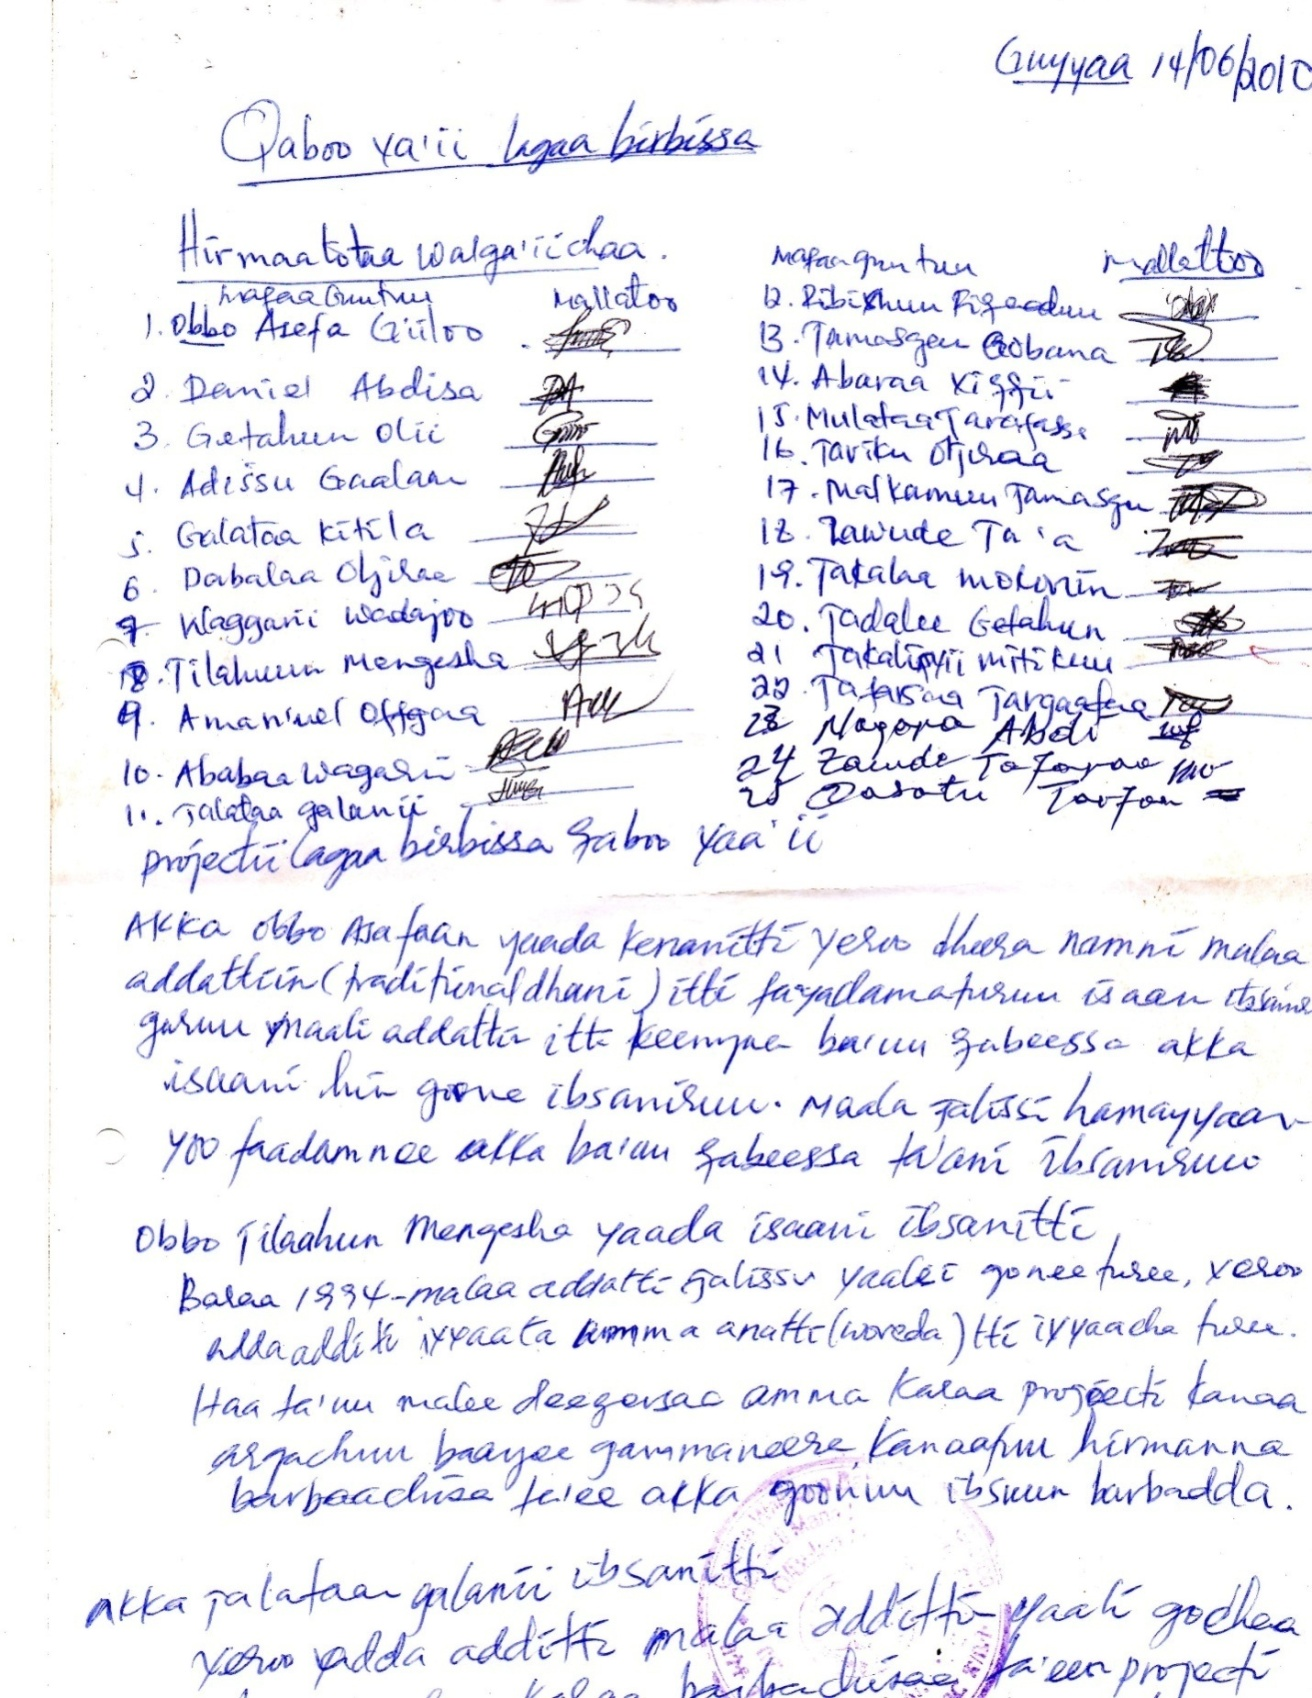 Guyyaa 14/06/2010
Qaboo ya'ii lagaa birbissa
Hirmaatotaa walga'iichaa.
Maqaa Guutuu Mallatoo
1. Obbo Asefa Giiloo
2. Daniel Abdisa
3. Getahun Olii
4. Adissu Gaalaan
5. Galataa Kitila
6. Dabalaa Oljiraa
7 Waggarii Wadajoo
8. Tilahuun Mengesha
9. Amanuel Offgaa
10. Ababaa Wagarii
11. Jalataa galanii
Maqaa guutuu Mallattoo
12. Ribi
13. Tamasgen Gobana
14. Abaraa
15. Mulataa Tarafassa
16. Tariku Oljiraa
17. Malkamuu Tamasgn
18. Zawude Ta'a
19. Takalaa mokonin
20. Tadalee Getahun
21 mitikuu
22. Targaafaa
23 Nagara Abdi
24 Zawude Tafaraa
25
projectii lagaa birbissa qaboo yaa'ii
Akka obbo Asafaan yaada kenanitti yeroo dheera namni malaa
addattiin (traditional dhani) itti fayadamaturuu isaan
guruu maali addattu itti keenyaa ba'uu qabeessa akka
isaani hin goone ibsaniruu. maala jalissi hamayyaan
yoo faadamnee akka ba'uu qabeessa ta'ani ibsaniruu
Obbo Tilaahun Mengesha yaada isaani ibsanitti,
Baraa 1994-malaa addatti jalissu yaalii gonee turee, yeroo
addaadditi iyyaata amma anatti (woreda) tti iyyaacha turee.
Haa ta'uu malee deegarsaa amma karaa projecti kanaa
argachuu baayee gammaneera, kanaafuu hirmanna
barbaachisa ta'ee akka goonuu ibsuun barbadda.
Akka jalataan galanii ibsanitti
yeroo adda additti malaa addittu yaali godhaa
karaa barbachisaa ta'een projecti